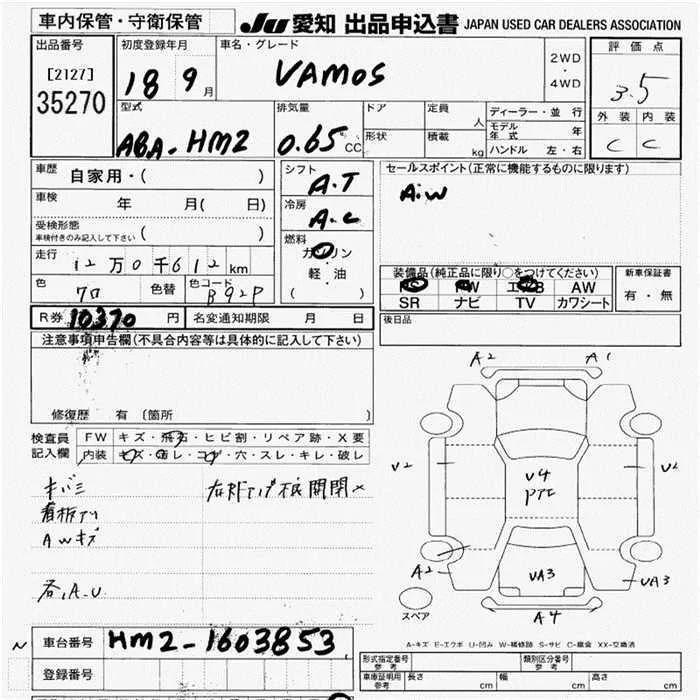 車内保管・守衛保管
JU 愛知 出品申込書 JAPAN USED CAR DEALERS ASSOCIATION
出品番号 [2127] 35270
初度登録年月 18 9月
車名・グレード VAMOS
2WD・4WD
評価点 3.5
外装 C 内装 C
型式 ABA-HM2
排気量 0.65 CC
ドア 形状
定員 人
積載 kg
ディーラー・並行
モデル年式 年
ハンドル 左・右
車歴 自家用・( )
車検 年 月( 日)
受検形態 ( )
車検付きのみ記入して下さい
走行 12万0千612km
色 クロ 色替 色コード B92P
シフト A.T
冷房 A.C
燃料 ガソリン
軽・油
( )
セールスポイント(正常に機能するものに限ります)
A.W
装備品(純正品に限り○をつけてください)
PS PW エアB AW
SR ナビ TV カワシート
新車保証書
有・無
R券 10370 円 名変通知期限 月 日
後日品
注意事項申告欄(不具合内容等は具体的に記入して下さい)
修復歴 有〔箇所 〕
検査員記入欄
FW キズ・飛石・ヒビ割・リペア跡・X要
内装 キズ・汚レ・コゲ・穴・スレ・キレ・破レ
キバミ
看板アト
AWキズ
各,A.U
開閉×
A2 A1
U2 U2
U4
A2 UA3 UA3
A4
スペア
A-キズ E-エクボ U-凹み W-補修跡 S-サビ C-腐食 XX-交換済
車台番号 HM2-1603853
登録番号
形式指定番号 参考 類別区分番号 参考
車庫証明用 参考 長さ cm 幅 cm 高さ cm